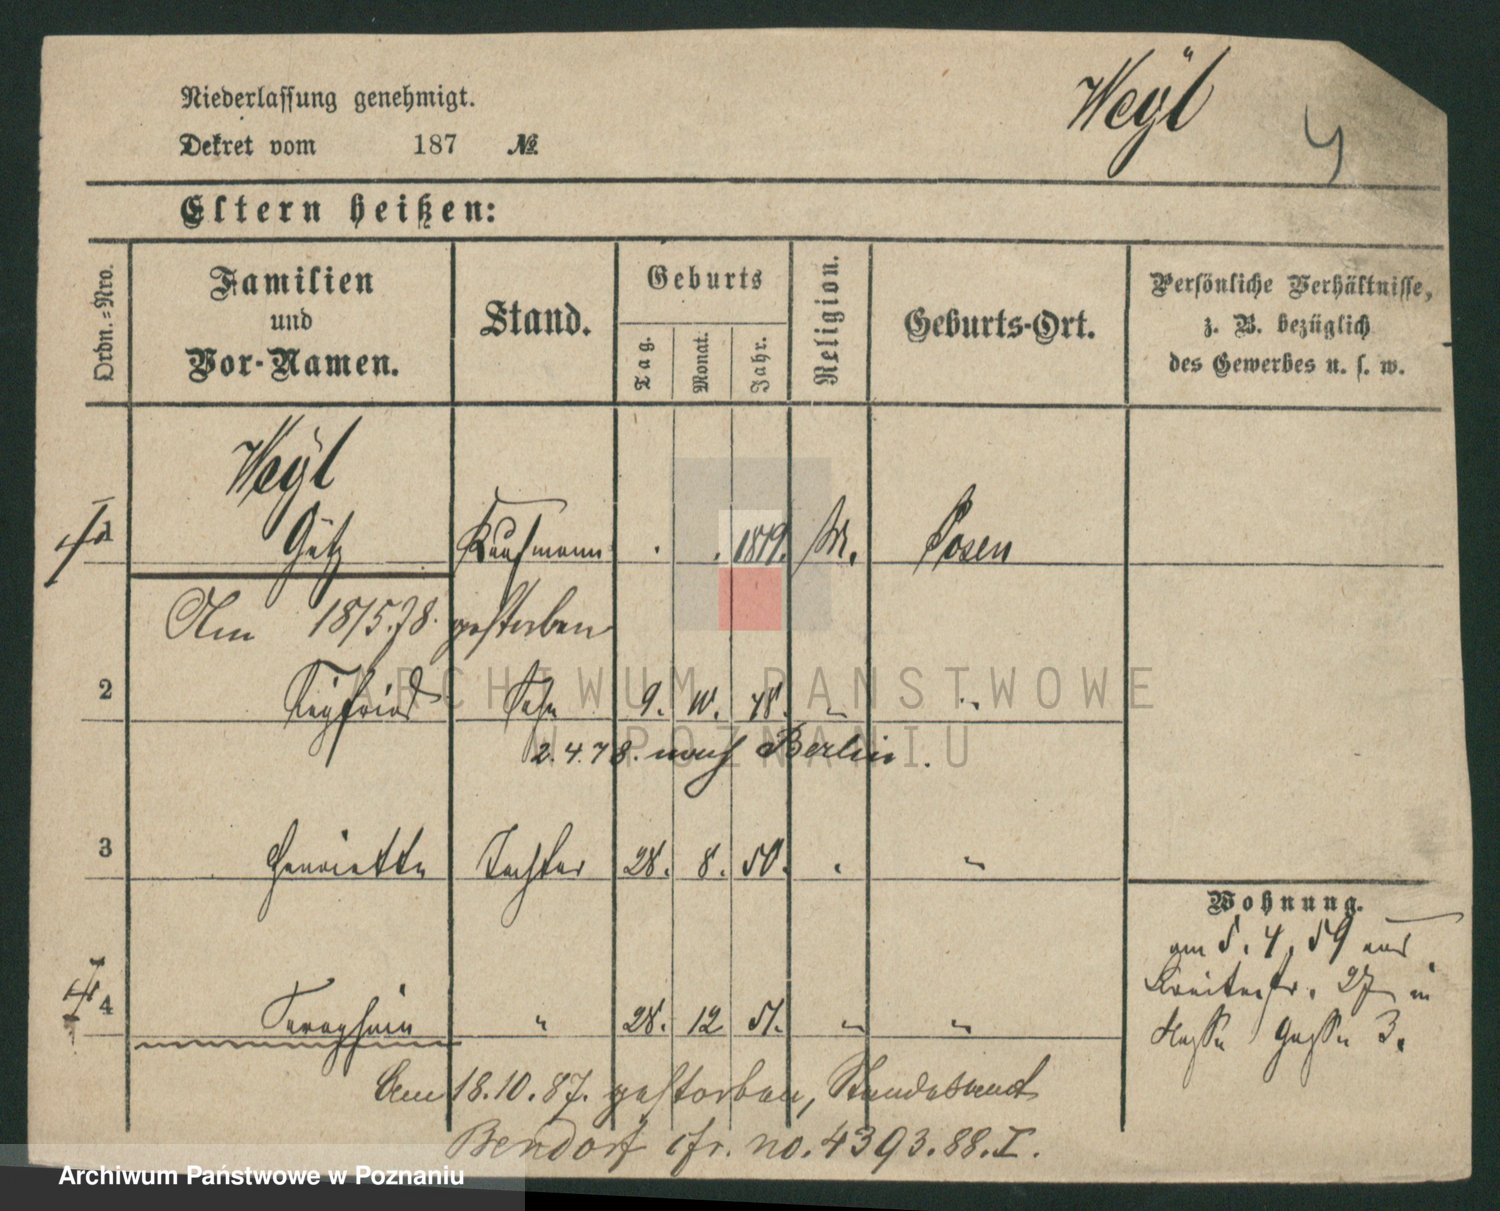 Weÿl
4
Niederlassung genehmigt.
Dekret vom 187 №
Eltern heißen:
Ordn.-Nro.
Familien
und
Vor-Namen.
Stand.
Geburts
Tag.
Monat.
Jahr.
Religion.
Geburts-Ort.
Persönliche Verhältnisse,
z. B. bezüglich
des Gewerbes u. s. w.
Weÿl
1 Götz Kaufmann 1819. M. Posen
Am 18/5.78. gestorben
2 Siegfried Sohn 9. 11. 48. " "
2.4.78. nach Berlin.
3 Henriette Tochter 28. 8. 50. "
4 Seraphine " 28. 12 51. " "
Am 18.10.87. gestorben, Standesamt
Bendorf cfr. no. 4393.88.I.
Wohnung.
am 5.4.59 aus
Breitestr. 27 in
Nasse Gasse 3.
ARCHIWUM PAŃSTWOWE
W POZNANIU
Archiwum Państwowe w Poznaniu